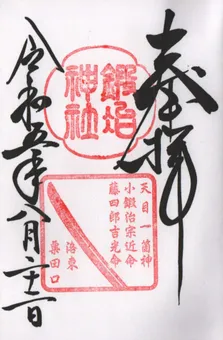 奉拝
鍛冶
神社
天目一箇神
小鍛治宗近命
藤四郎吉光命
洛東
粟田口
令和五年八月二十一日